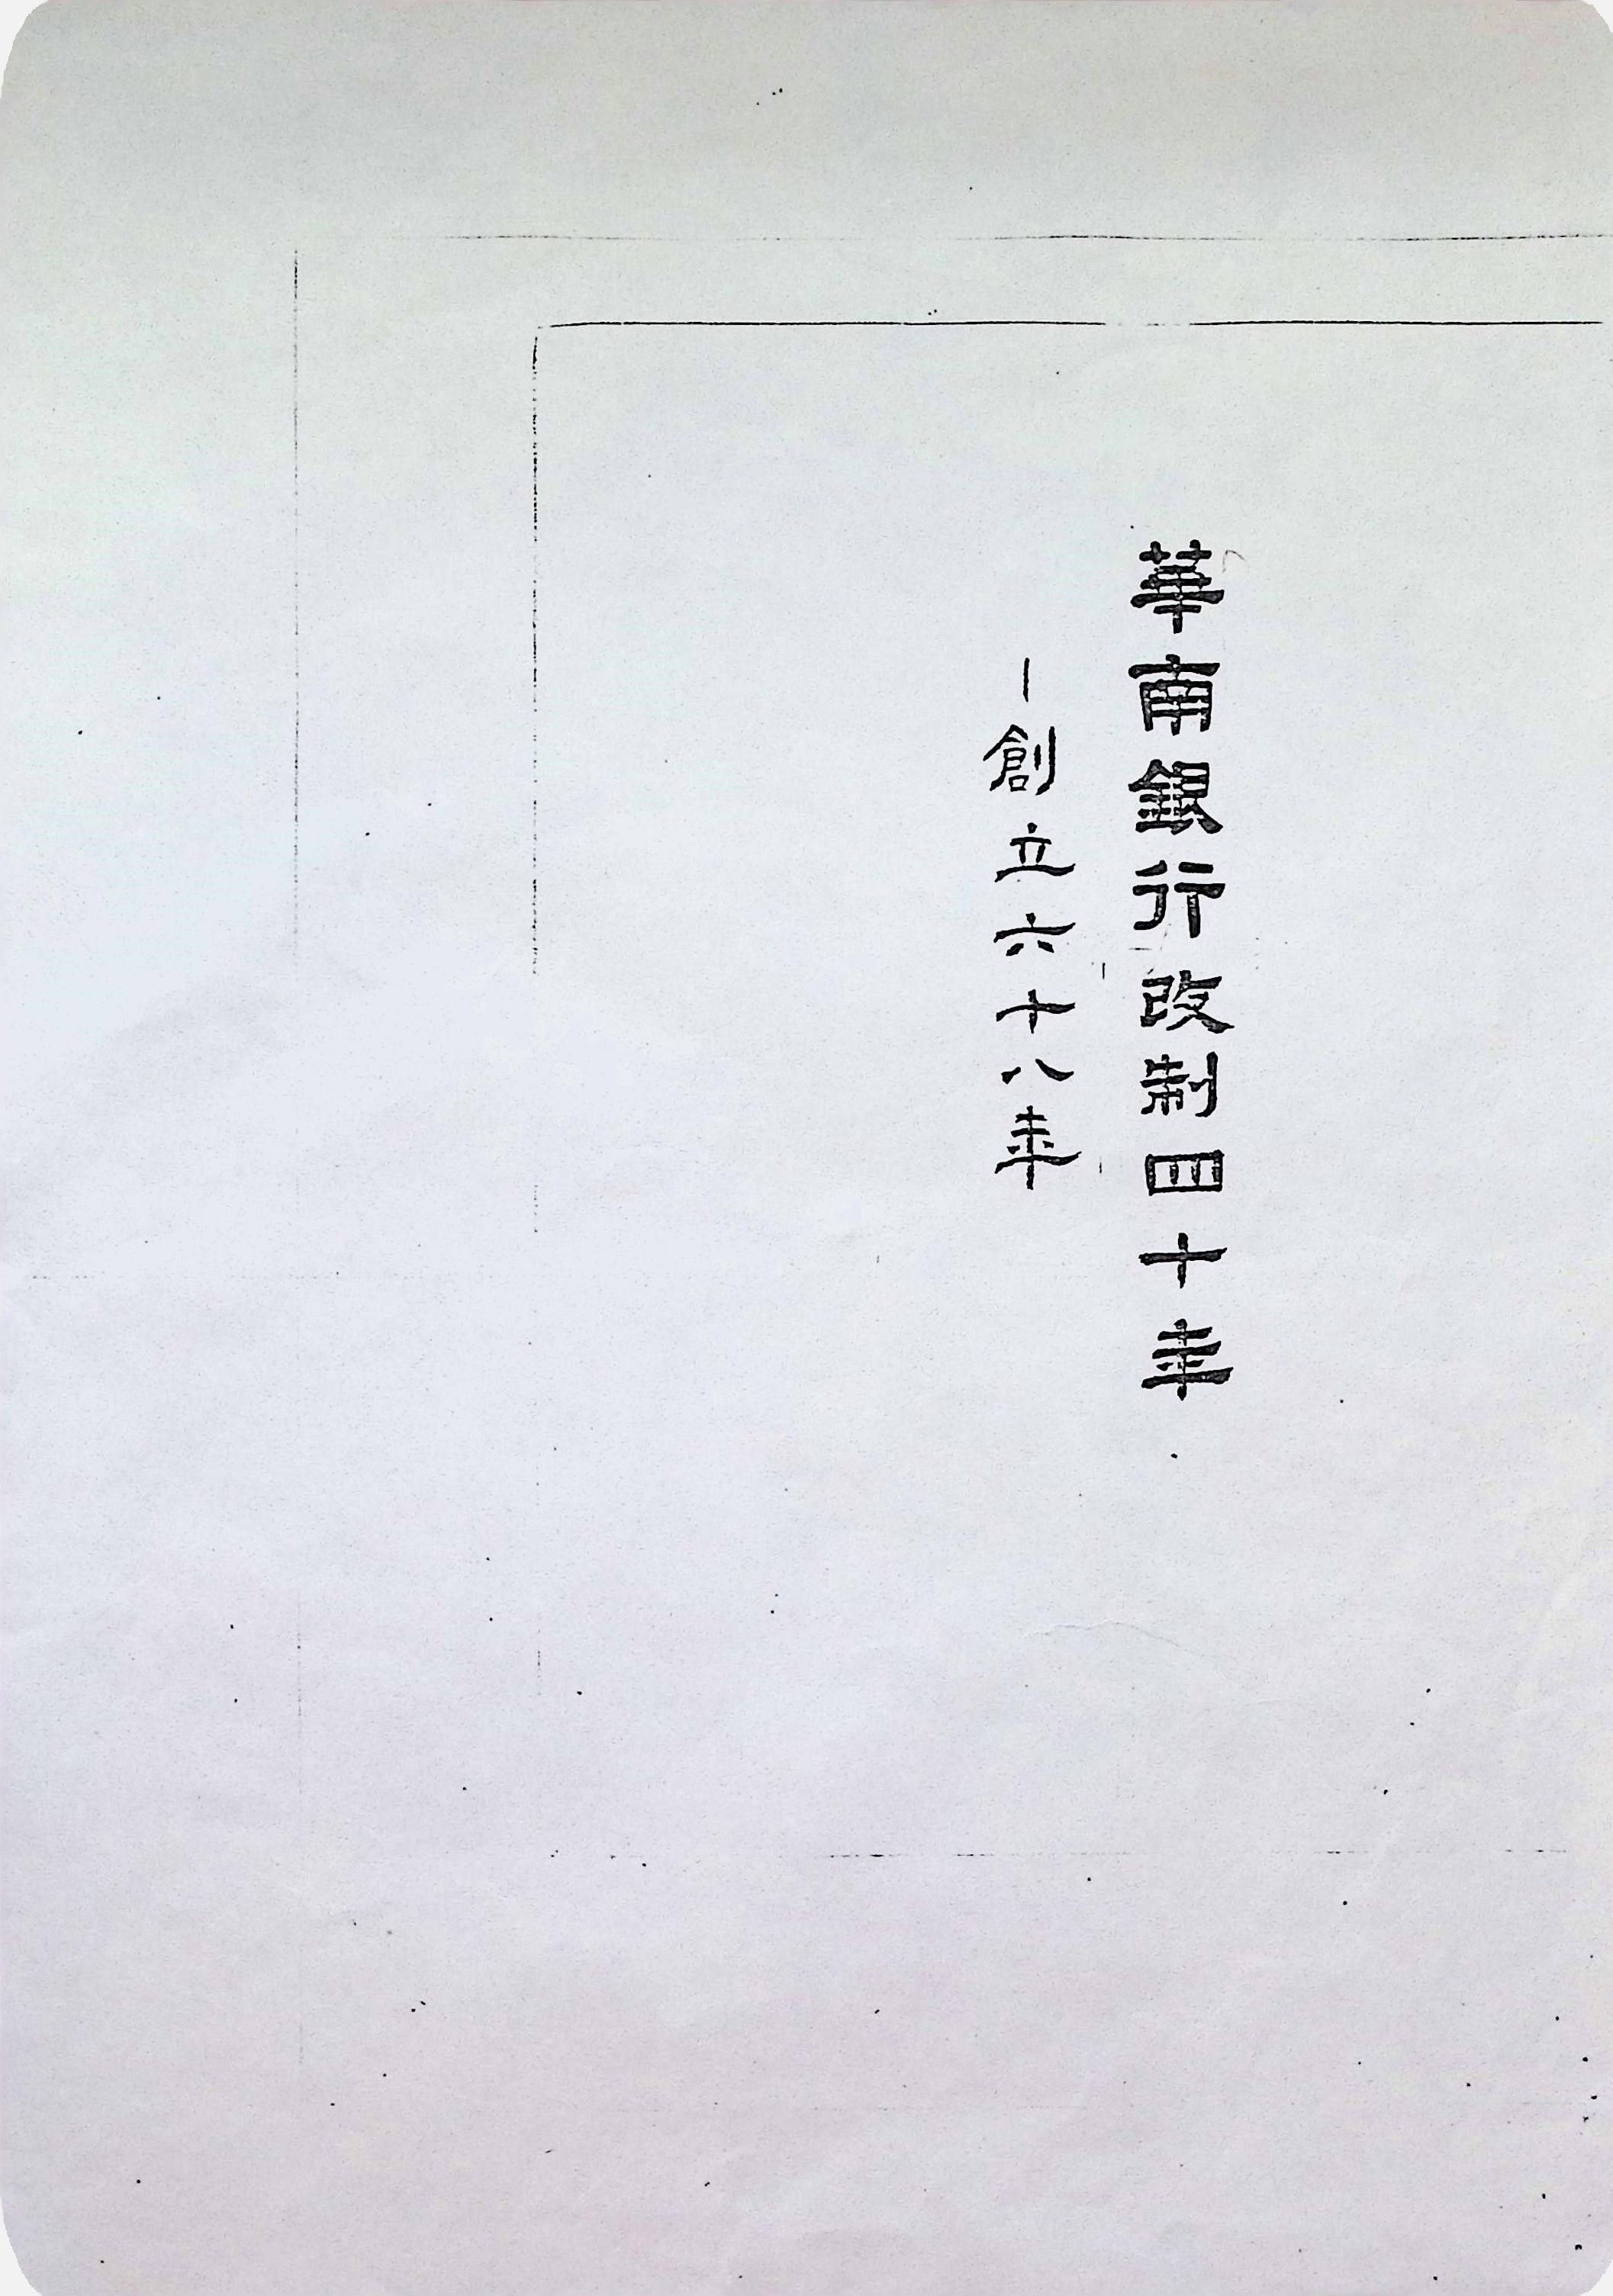 華南銀行改制四十年
—創立六十八年